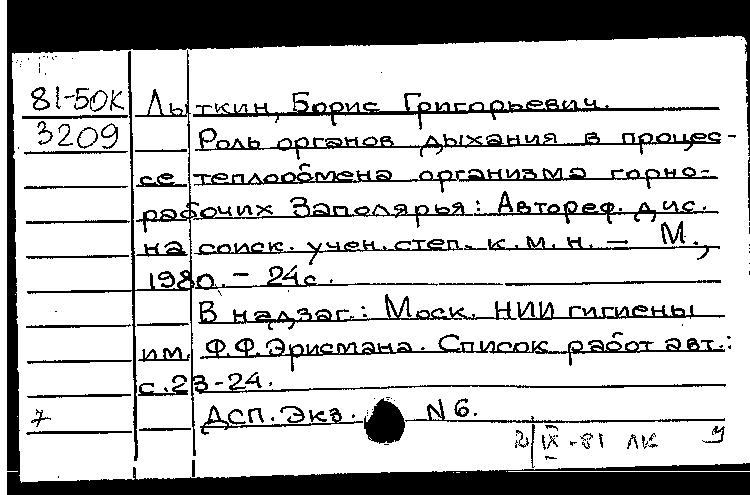 81-50К Лыткин, Борис Григорьевич.
3209 Роль органов дыхания в процес-
се теплообмена организма горно-
рабочих Заполярья: Автореф. дис.
на соиск. учен. степ. к.м.н. - М.,
1980. - 24с.
В надзаг.: Моск. НИИ гигиены
им. Ф.Ф.Эрисмана. Список работ авт.:
с.23-24.
ДСП. Экз. N6.
IX-81 ЛК